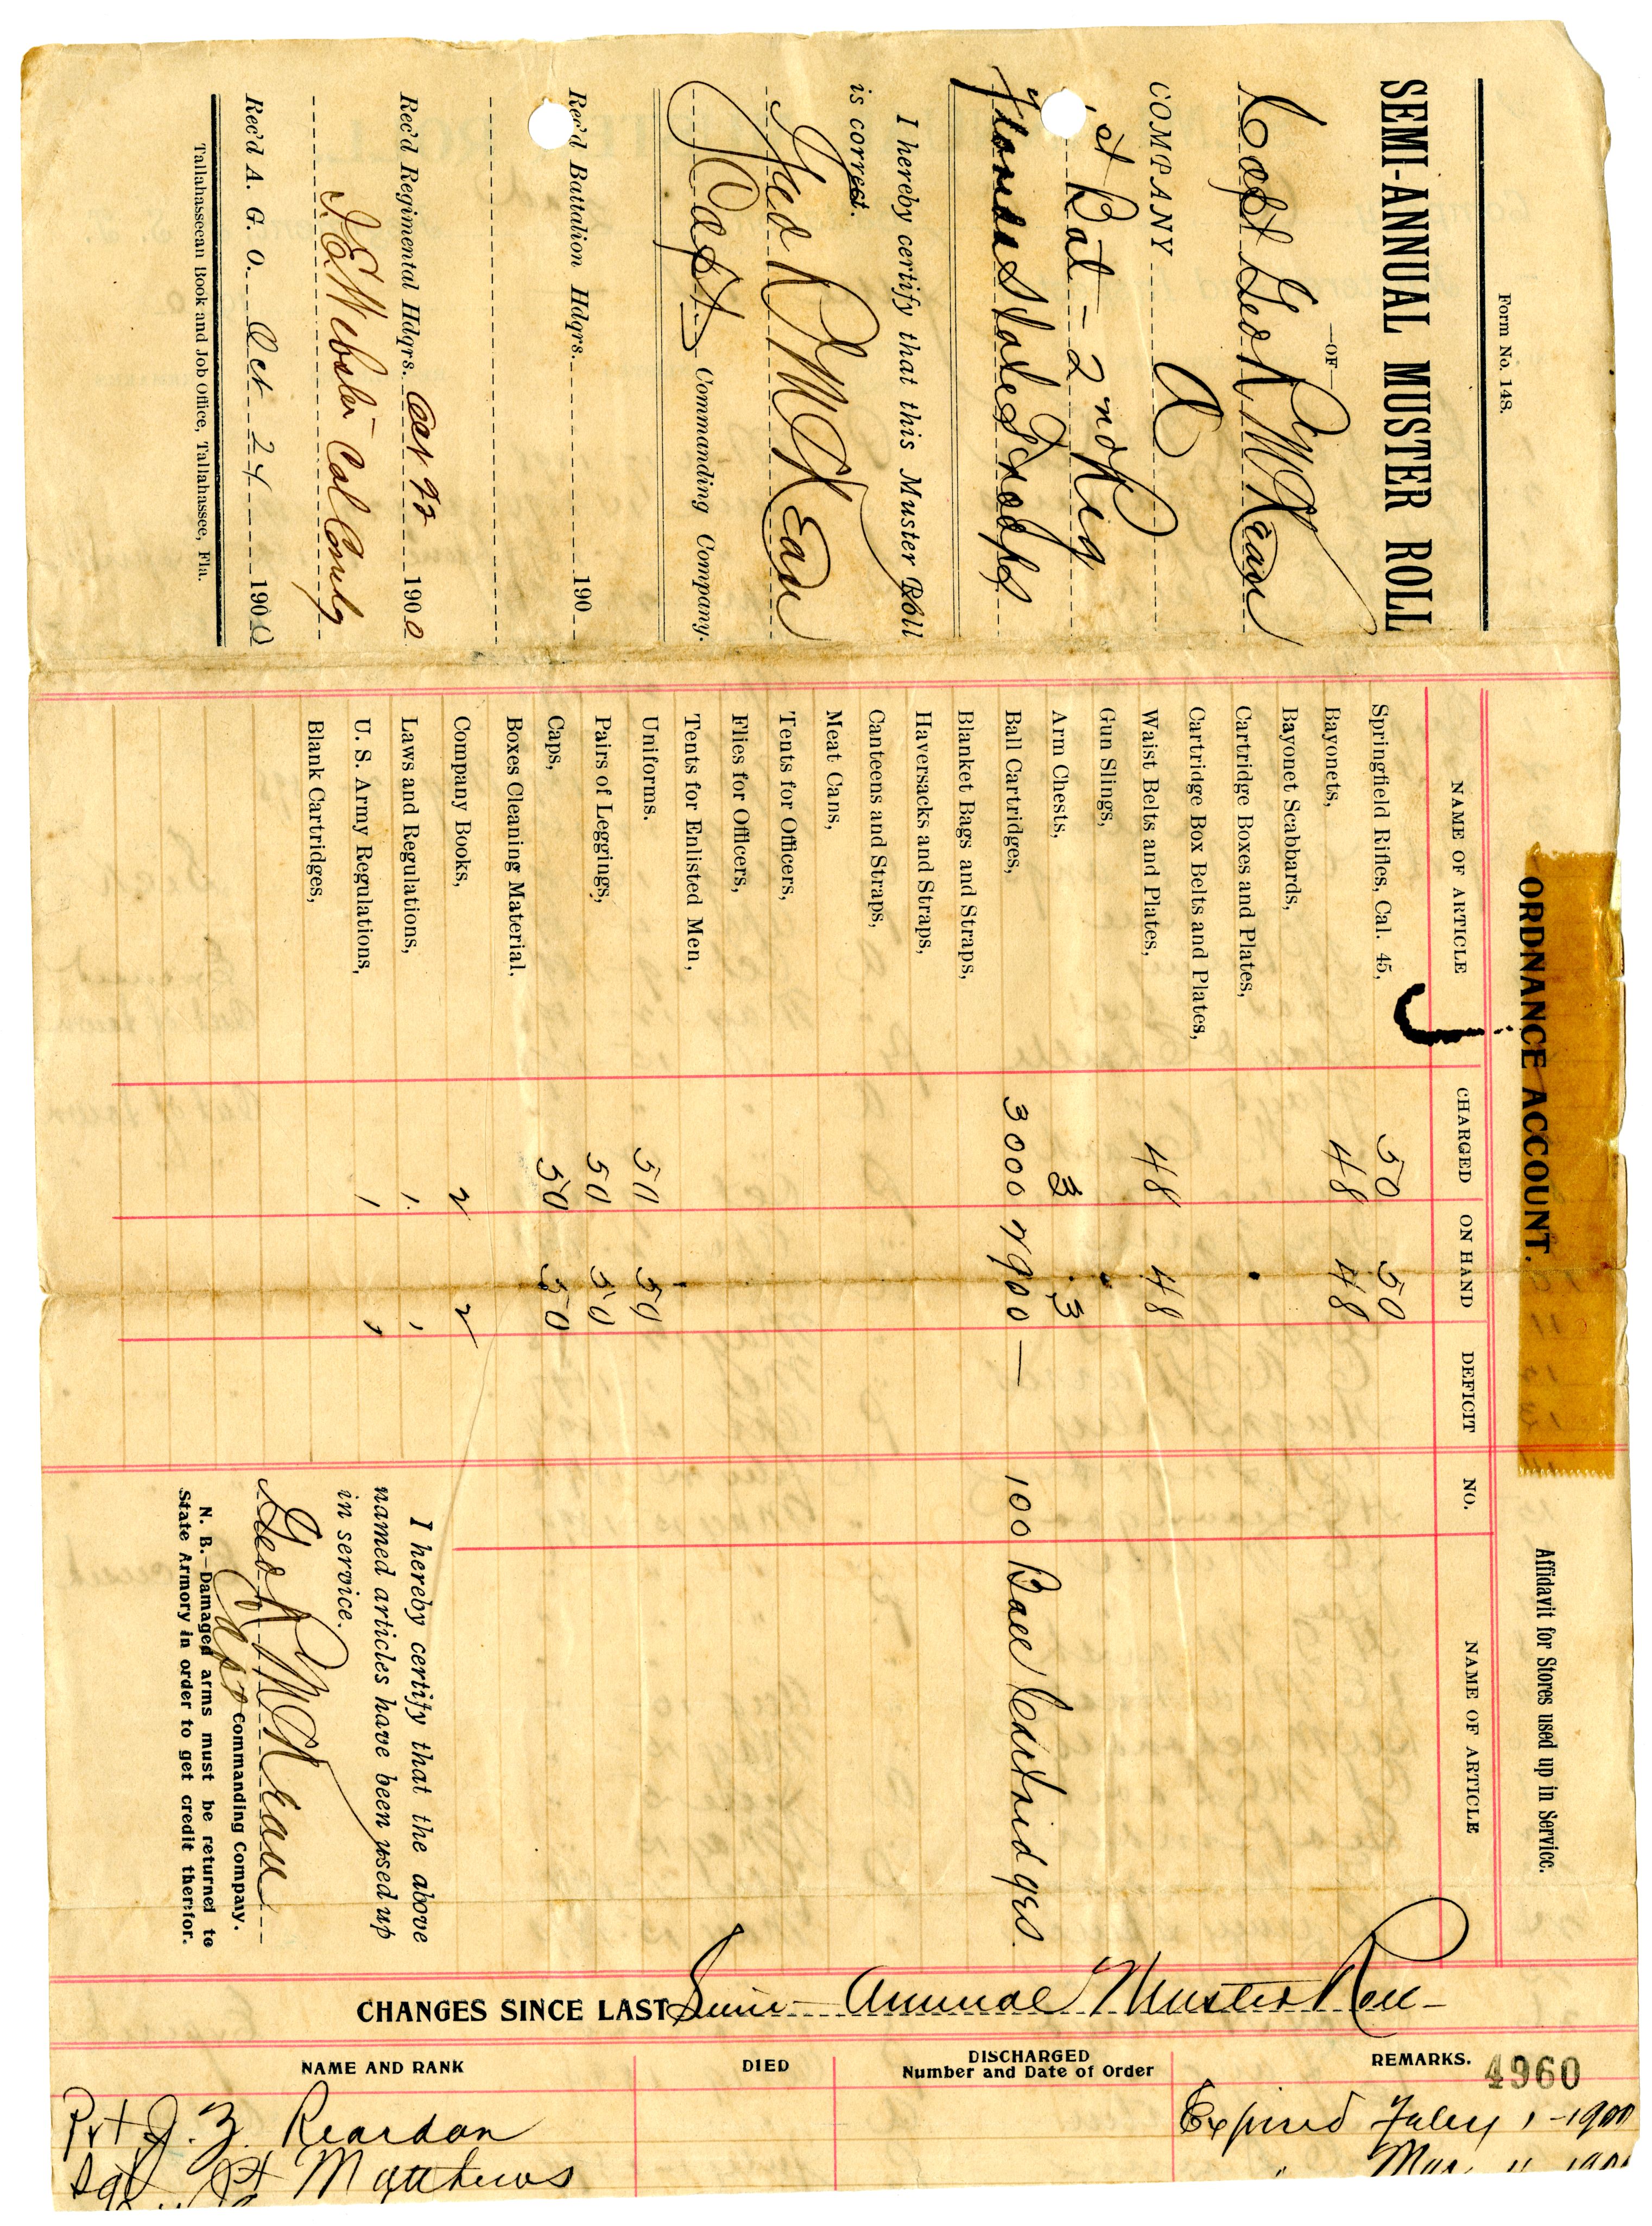 Form No. 148.
SEMI-ANNUAL MUSTER ROLL
—OF—
Capt Geo R McKean
COMPANY A
1st Bat - 2nd Reg
Florida State Troops
I hereby certify that this Muster Roll
is correct.
Geo R McKean
Capt Commanding Company.
Rec'd Battalion Hdqrs. 190
Rec'd Regimental Hdqrs. Oct 1900
J. E. Webster Col Comdg
Rec'd A. G. O. Oct 24 1900
Tallahasseean Book and Job Office, Tallahassee, Fla.
ORDNANCE ACCOUNT.
NAME OF ARTICLE CHARGED ON HAND DEFICIT
Springfield Rifles, Cal. 45, 50 50
Bayonets, 48 48
Bayonet Scabbards,
Cartridge Boxes and Plates,
Cartridge Box Belts and Plates,
Waist Belts and Plates, 48 48
Gun Slings,
Arm Chests, 3 3
Ball Cartridges, 3000 2900 —
Blanket Bags and Straps,
Haversacks and Straps,
Canteens and Straps,
Meat Cans,
Tents for Officers,
Flies for Officers,
Tents for Enlisted Men,
Uniforms. 50 50
Pairs of Leggings, 50 50
Caps, 50 50
Boxes Cleaning Material,
Company Books, 2 2
Laws and Regulations, 1 1
U. S. Army Regulations, 1 1
Blank Cartridges,
Affidavit for Stores used up in Service.
NO. NAME OF ARTICLE
100 Ball Cartridges.
I hereby certify that the above
named articles have been used up
in service.
Geo R McKean
Capt Commanding Company.
N. B.—Damaged arms must be returned to
State Armory in order to get credit therefor.
CHANGES SINCE LAST Semi-Annual Muster Roll
NAME AND RANK DIED DISCHARGED REMARKS.
Number and Date of Order
4960
Pvt J. Z. Reardon Expired July 1-1900
Sgt Matthews " May